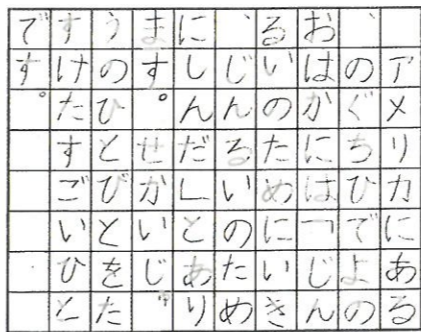 アメリカにある
、のぐちひでよの
おはかには「じん
るいのためにいき
、じんるいのため
にしんだ」とあり
ます。せかいじゅ
うのひとびとをた
すけたすごいひと
です。